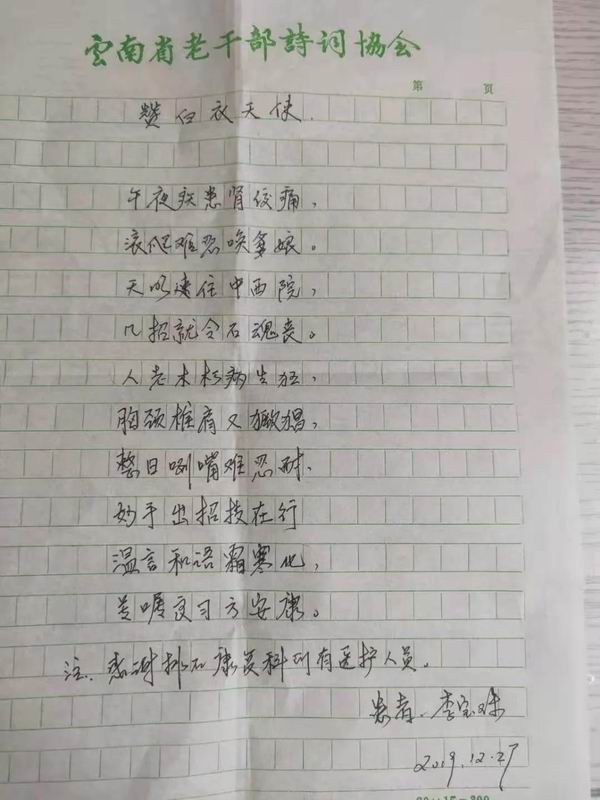 雲南省老干部詩词協会
第 页
赞白衣天使.
午夜疾患肾绞痛,
滚爬难忍唤爹娘。
天明速住中西院,
几招就令石魂丧。
人老木朽病生狂,
胸颈椎肩又猖,
整日咧嘴难忍耐.
妙手出招技在行
温言和语霜寒化,
方安康。
注:感谢排石康复科所有医护人员。
患者:李宝珠
2019.12.27